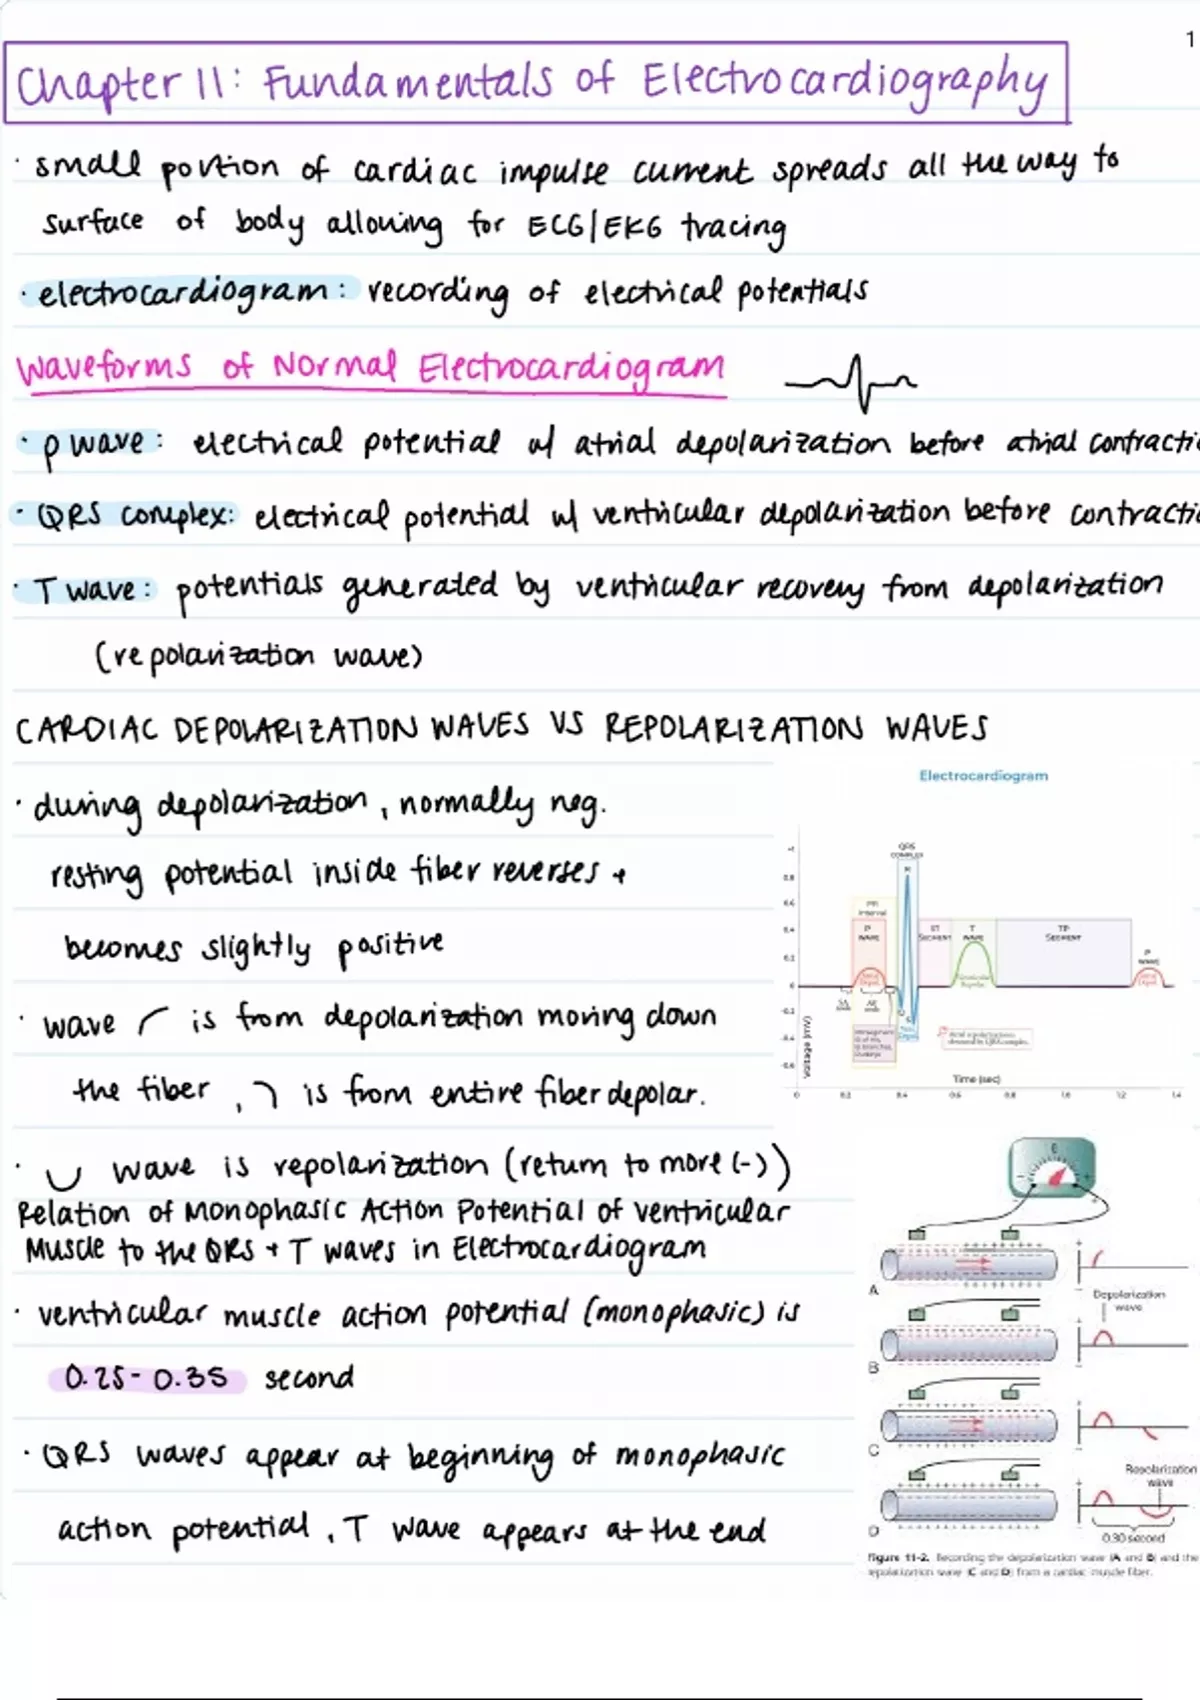 1
Chapter 11: Fundamentals of Electrocardiography
· small portion of cardiac impulse current spreads all the way to
surface of body allowing for ECG/EKG tracing
· electrocardiogram: recording of electrical potentials
Waveforms of Normal Electrocardiogram
· p wave: electrical potential w/ atrial depolarization before atrial contractio
· QRS complex: electrical potential w/ ventricular depolarization before contractio
· T wave: potentials generated by ventricular recovery from depolarization
(repolarization wave)
CARDIAC DEPOLARIZATION WAVES VS REPOLARIZATION WAVES
· during depolarization, normally neg.
resting potential inside fiber reverses +
becomes slightly positive
· wave is from depolarization moving down
the fiber, is from entire fiber depolar.
· wave is repolarization (return to more (-))
Relation of Monophasic Action Potential of ventricular
Muscle to the QRS + T waves in Electrocardiogram
· ventricular muscle action potential (monophasic) is
0.25-0.35 second
· QRS waves appear at beginning of monophasic
action potential, T wave appears at the end
Electrocardiogram
QRS
COMPLEX
R
PR
Interval
P
WAVE
ST
SEGMENT
T
WAVE
TP
SEGMENT
P
WAVE
Voltage (mV)
Time (sec)
0 0.2 0.4 0.6 0.8 1.0 1.2 1.4
0
A
Depolarization
wave
B
C
Repolarization
wave
D
0.30 second
Figure 11-2. Recording the depolarization wave (A and B) and the
repolarization wave (C and D) from a cardiac muscle fiber.